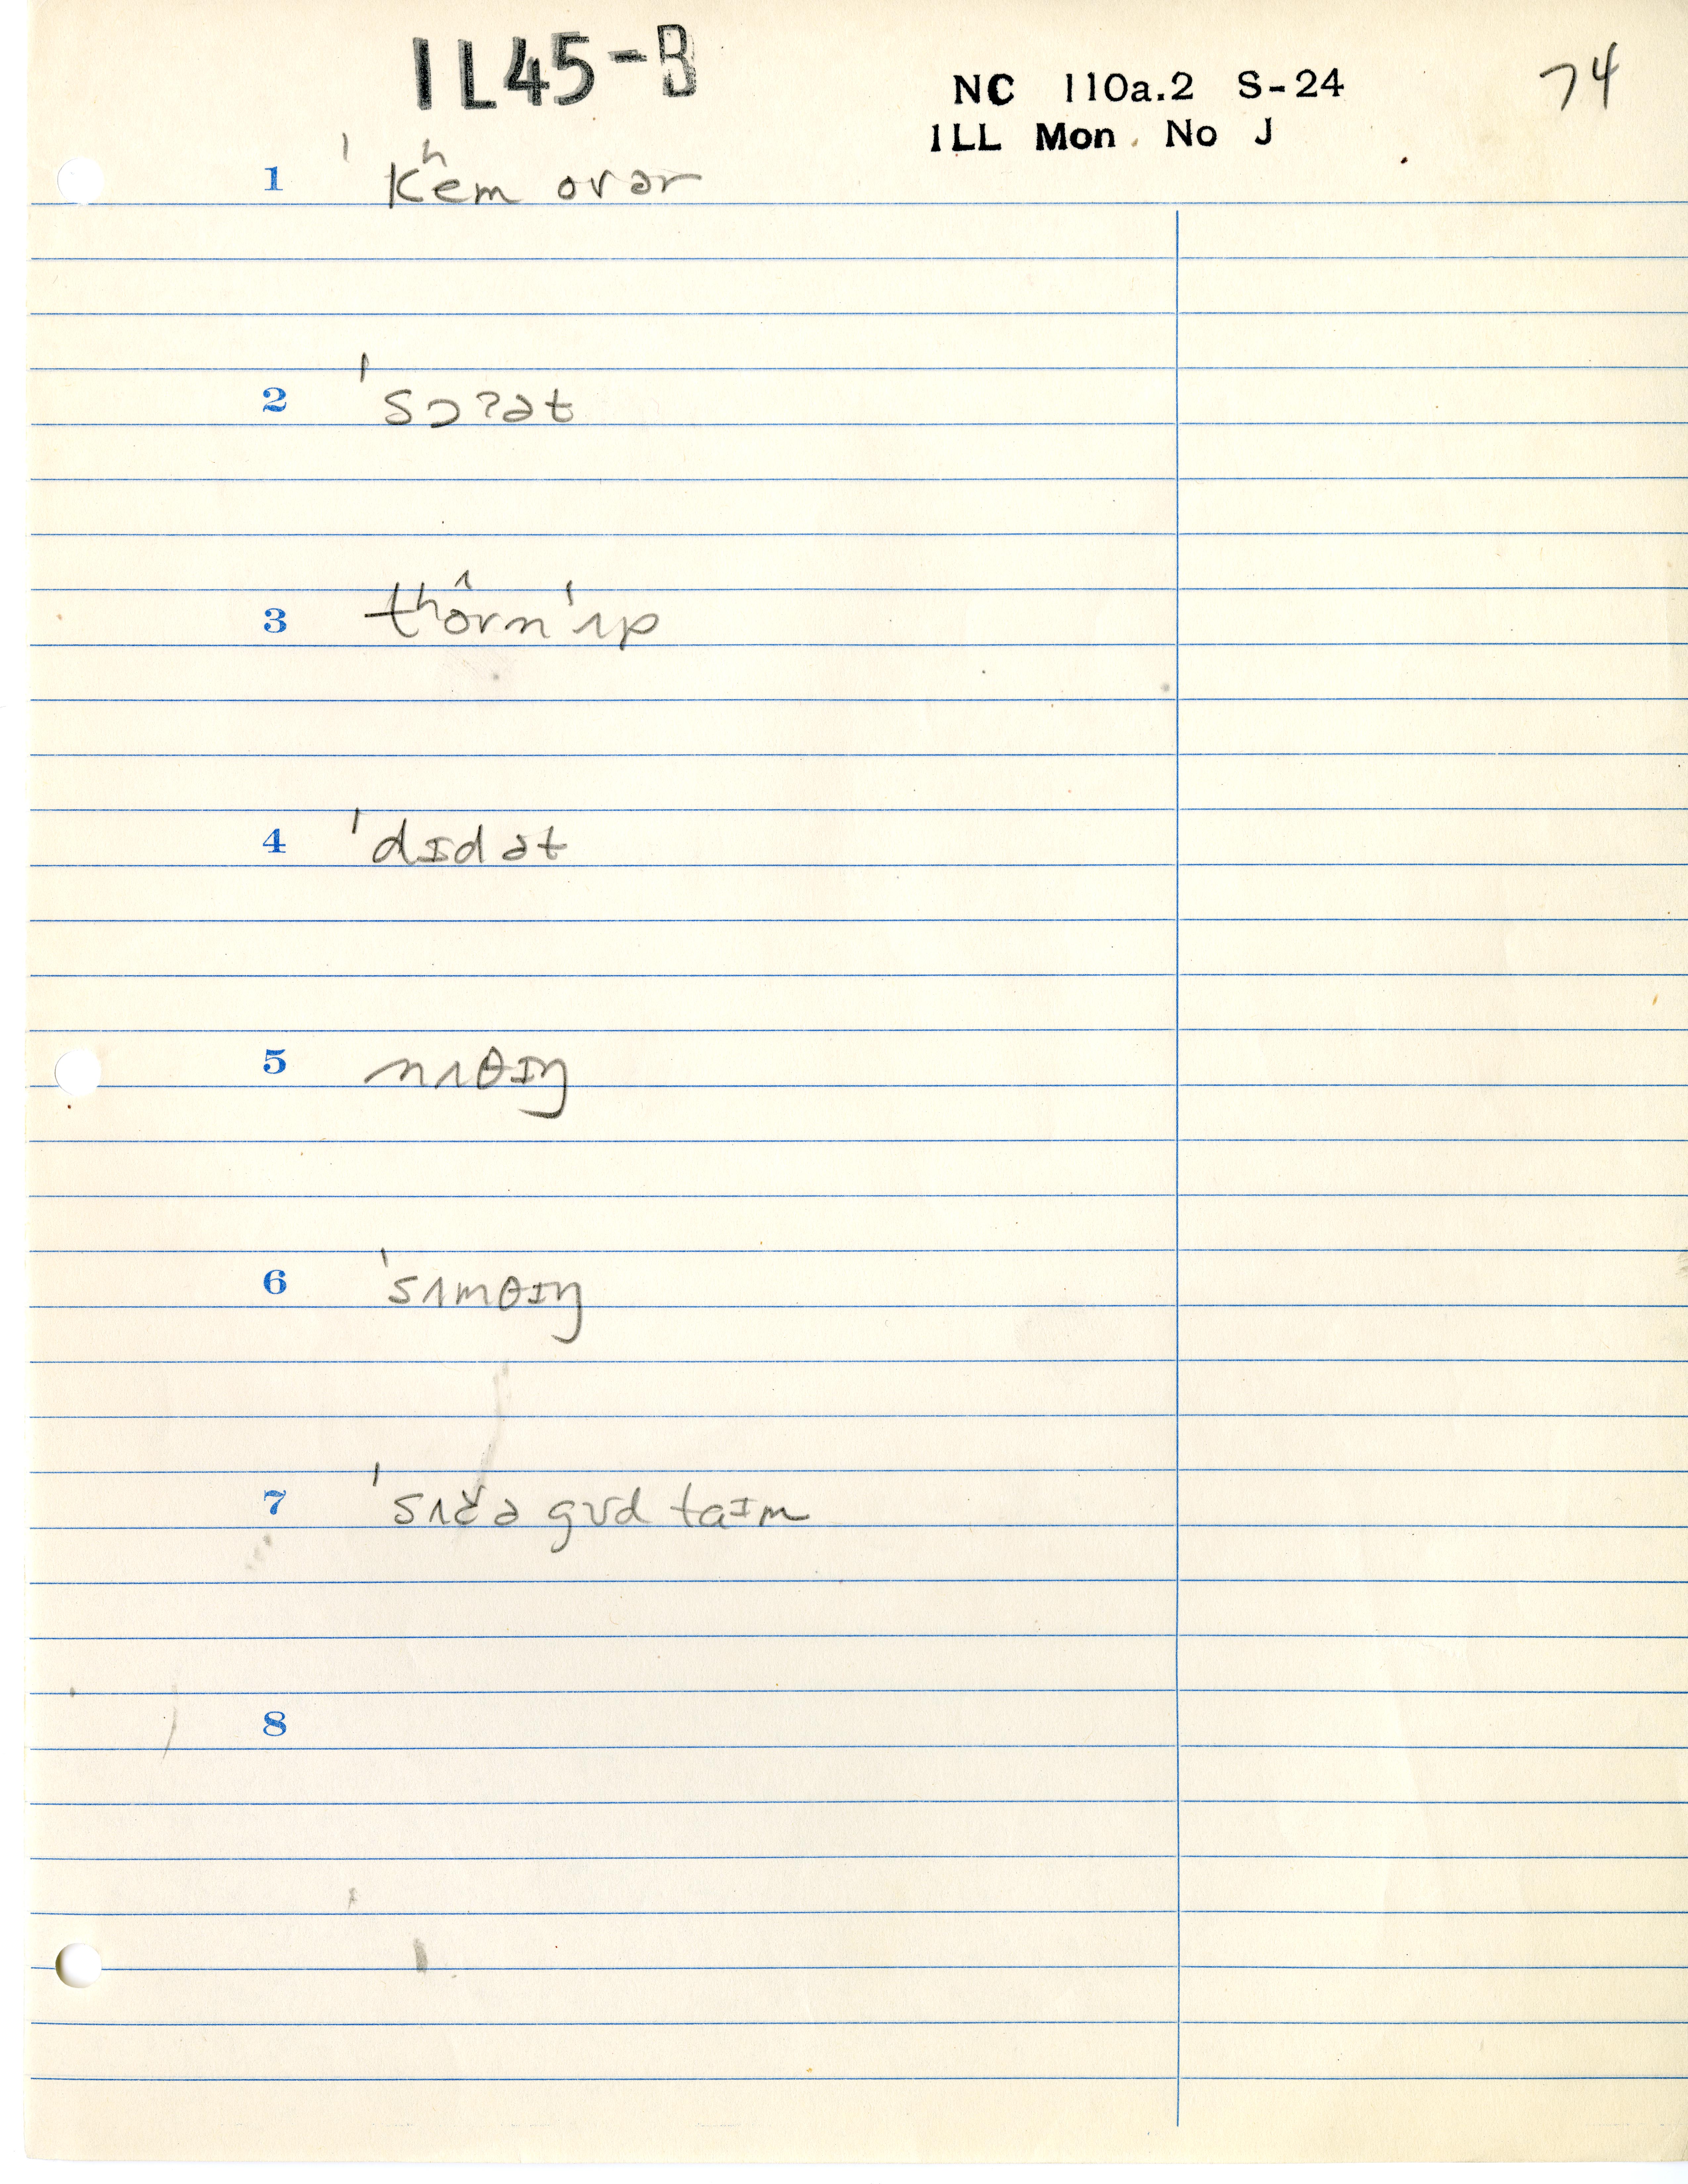 IL45-B
NC 110a.2 S-24
ILL Mon. No J
74
1 ˈkʰem ovər
2 ˈsɔʔət
3 tʰôrnˈʌp
4 ˈdɪdət
5 nʌθɪŋ
6 ˈsʌmθɪŋ
7 ˈsʌčə gʊd taɪm
8